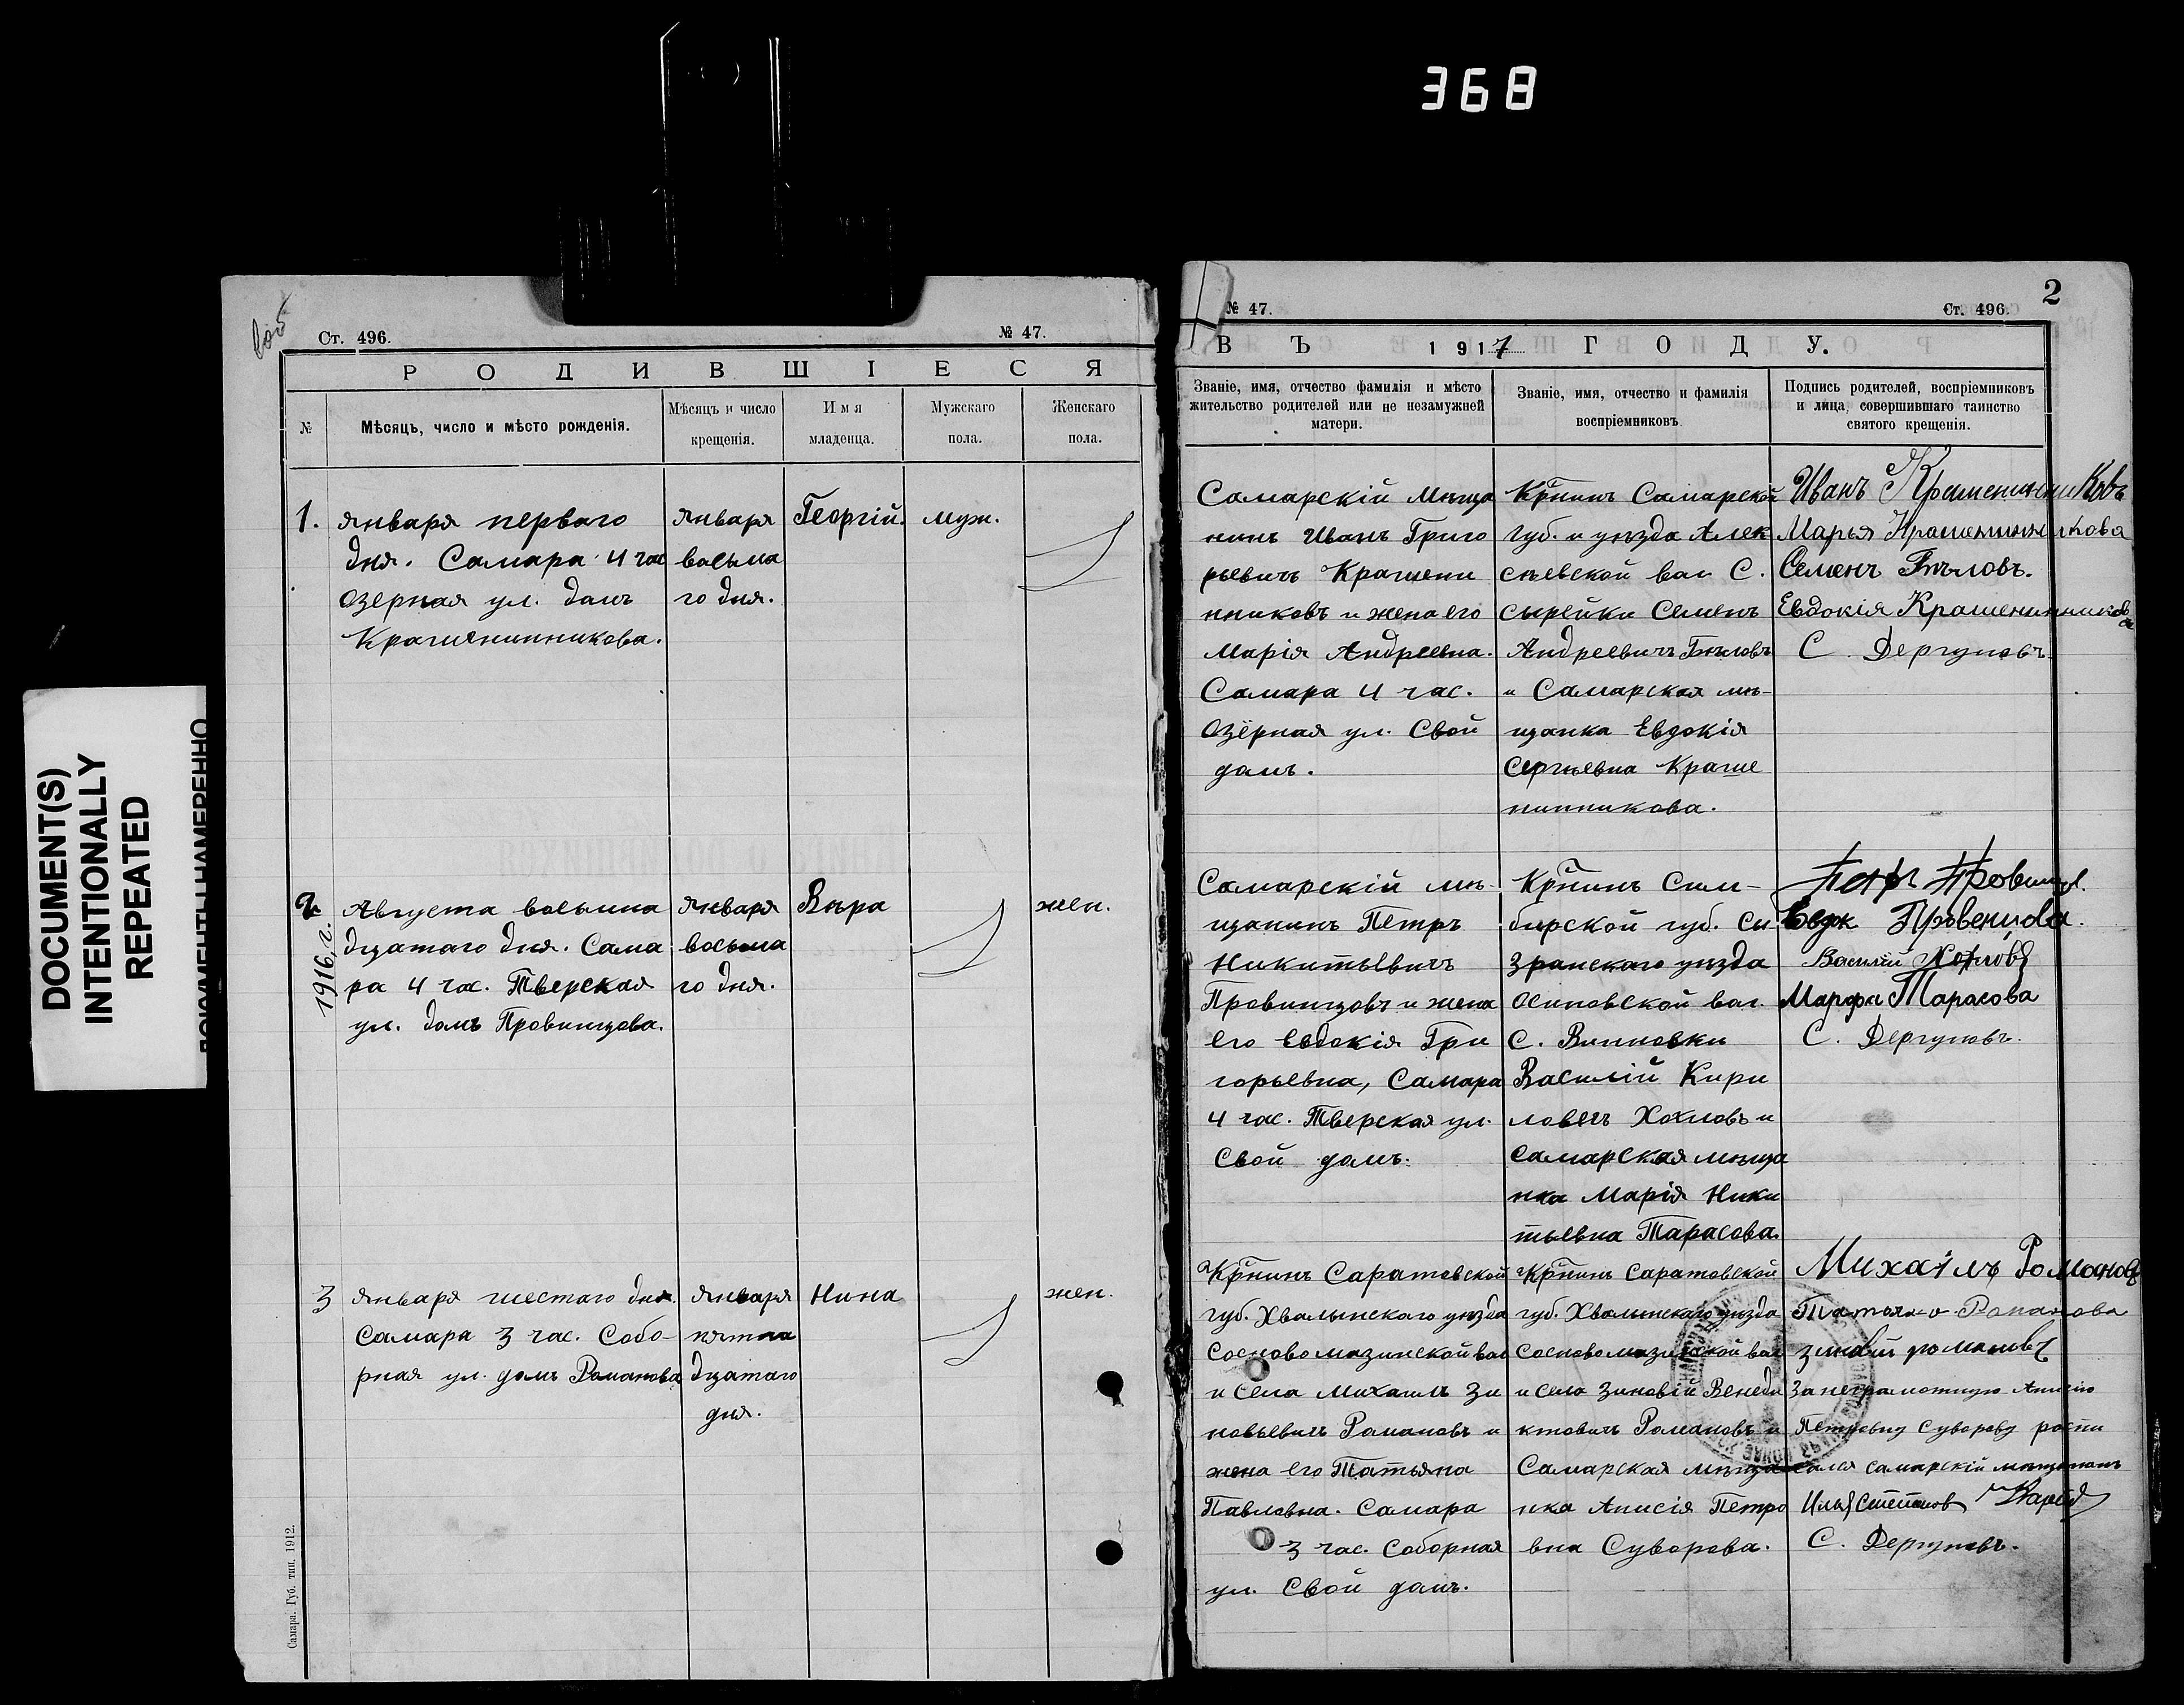 368
DOCUMENT(S)
INTENTIONALLY
REPEATED
ДОКУМЕНТЫ НАМЕРЕННО
Ст. 496.
№ 47.
РОДИВШІЕСЯ
№
Мѣсяцъ, число и мѣсто рожденія.
Мѣсяцъ и число
крещенія.
Имя
младенца.
Мужскаго
пола.
Женскаго
пола.
1.
Января перваго
дня. Самара 4 час
Озерная ул. домъ
Крашенинникова.
Января
восьма
го дня.
Георгій.
муж.
2
1916 г.
Августа восьмна
дцатаго дня. Сама
ра 4 час. Тверская
ул. домъ Провинцова.
Января
восьма
го дня.
Вѣра
жен.
3
Января шестаго дня.
Самара 3 час. Собо-
рная ул. домъ Романова
Января
пятна
дцатаго
дня.
Нина
жен.
Самара. Губ. тип. 1912.
№ 47.
Ст. 496.
2
ВЪ 1917 ГОДУ.
Званіе, имя, отчество фамилія и мѣсто
жительство родителей или не незамужней
матери.
Званіе, имя, отчество и фамилія
воспріемниковъ
Подпись родителей, воспріемниковъ
и лица, совершившаго таинство
святого крещенія.
Самарскій мѣща
нинъ Иванъ Григо
рьевичъ Крашени
нниковъ и жена его
Марія Андреевна.
Самара 4 час.
Озёрная ул. Свой
домъ.
Крнинъ Самарской
губ. и уѣзда Алек
сѣевской вол С.
Сырейки Семенъ
Андреевичъ Бѣловъ
и Самарская мѣ-
щанка Евдокія
Сергѣевна Краше
нинникова.
Иванъ Крашенинниковъ
Марья Крашенинникова
Семенъ Бѣловъ.
Евдокія Крашенинникова
С. Дергуновъ.
Самарскій мѣ-
щанинъ Петръ
Никитьевичъ
Провинцовъ и жена
его Евдокія Гри
горьевна, Самара
4 час. Тверская ул.
Свой домъ.
Крнинъ Сим-
бирской губ. Сы
зранскаго уѣзда
Осиновской вол.
С. Винновки
Василій Кири
ловичъ Хохловъ и
Самарская мѣща
нка Марія Ники
тьевна Тарасова.
Провинцов.
Евдок Провенцова.
Василій Хохловъ
Марфа Тарасова
С. Дергуновъ.
Крнинъ Саратовской
губ. Хвалынскаго уѣзда
Сосновомазинской вол
и села Михаилъ Зи
новьевичъ Романовъ и
жена его Татьяна
Павловна. Самара
3 час. Соборная
ул. Свой домъ.
Крнинъ Саратовской
губ. Хвалынскаго уѣзда
Сосновомазинской вол
и села Зиновій Венеди
ктовичъ Романовъ и
Самарская мѣща
нка Анисія Петро
вна Суворова.
Михаілъ Романовъ
Татьяна Романова
Зиновій романовъ
За неграмотную Анисію
Петровну Суворову роспи
сался самарскій мѣщанинъ
Илья Степанов
С. Дергуновъ.